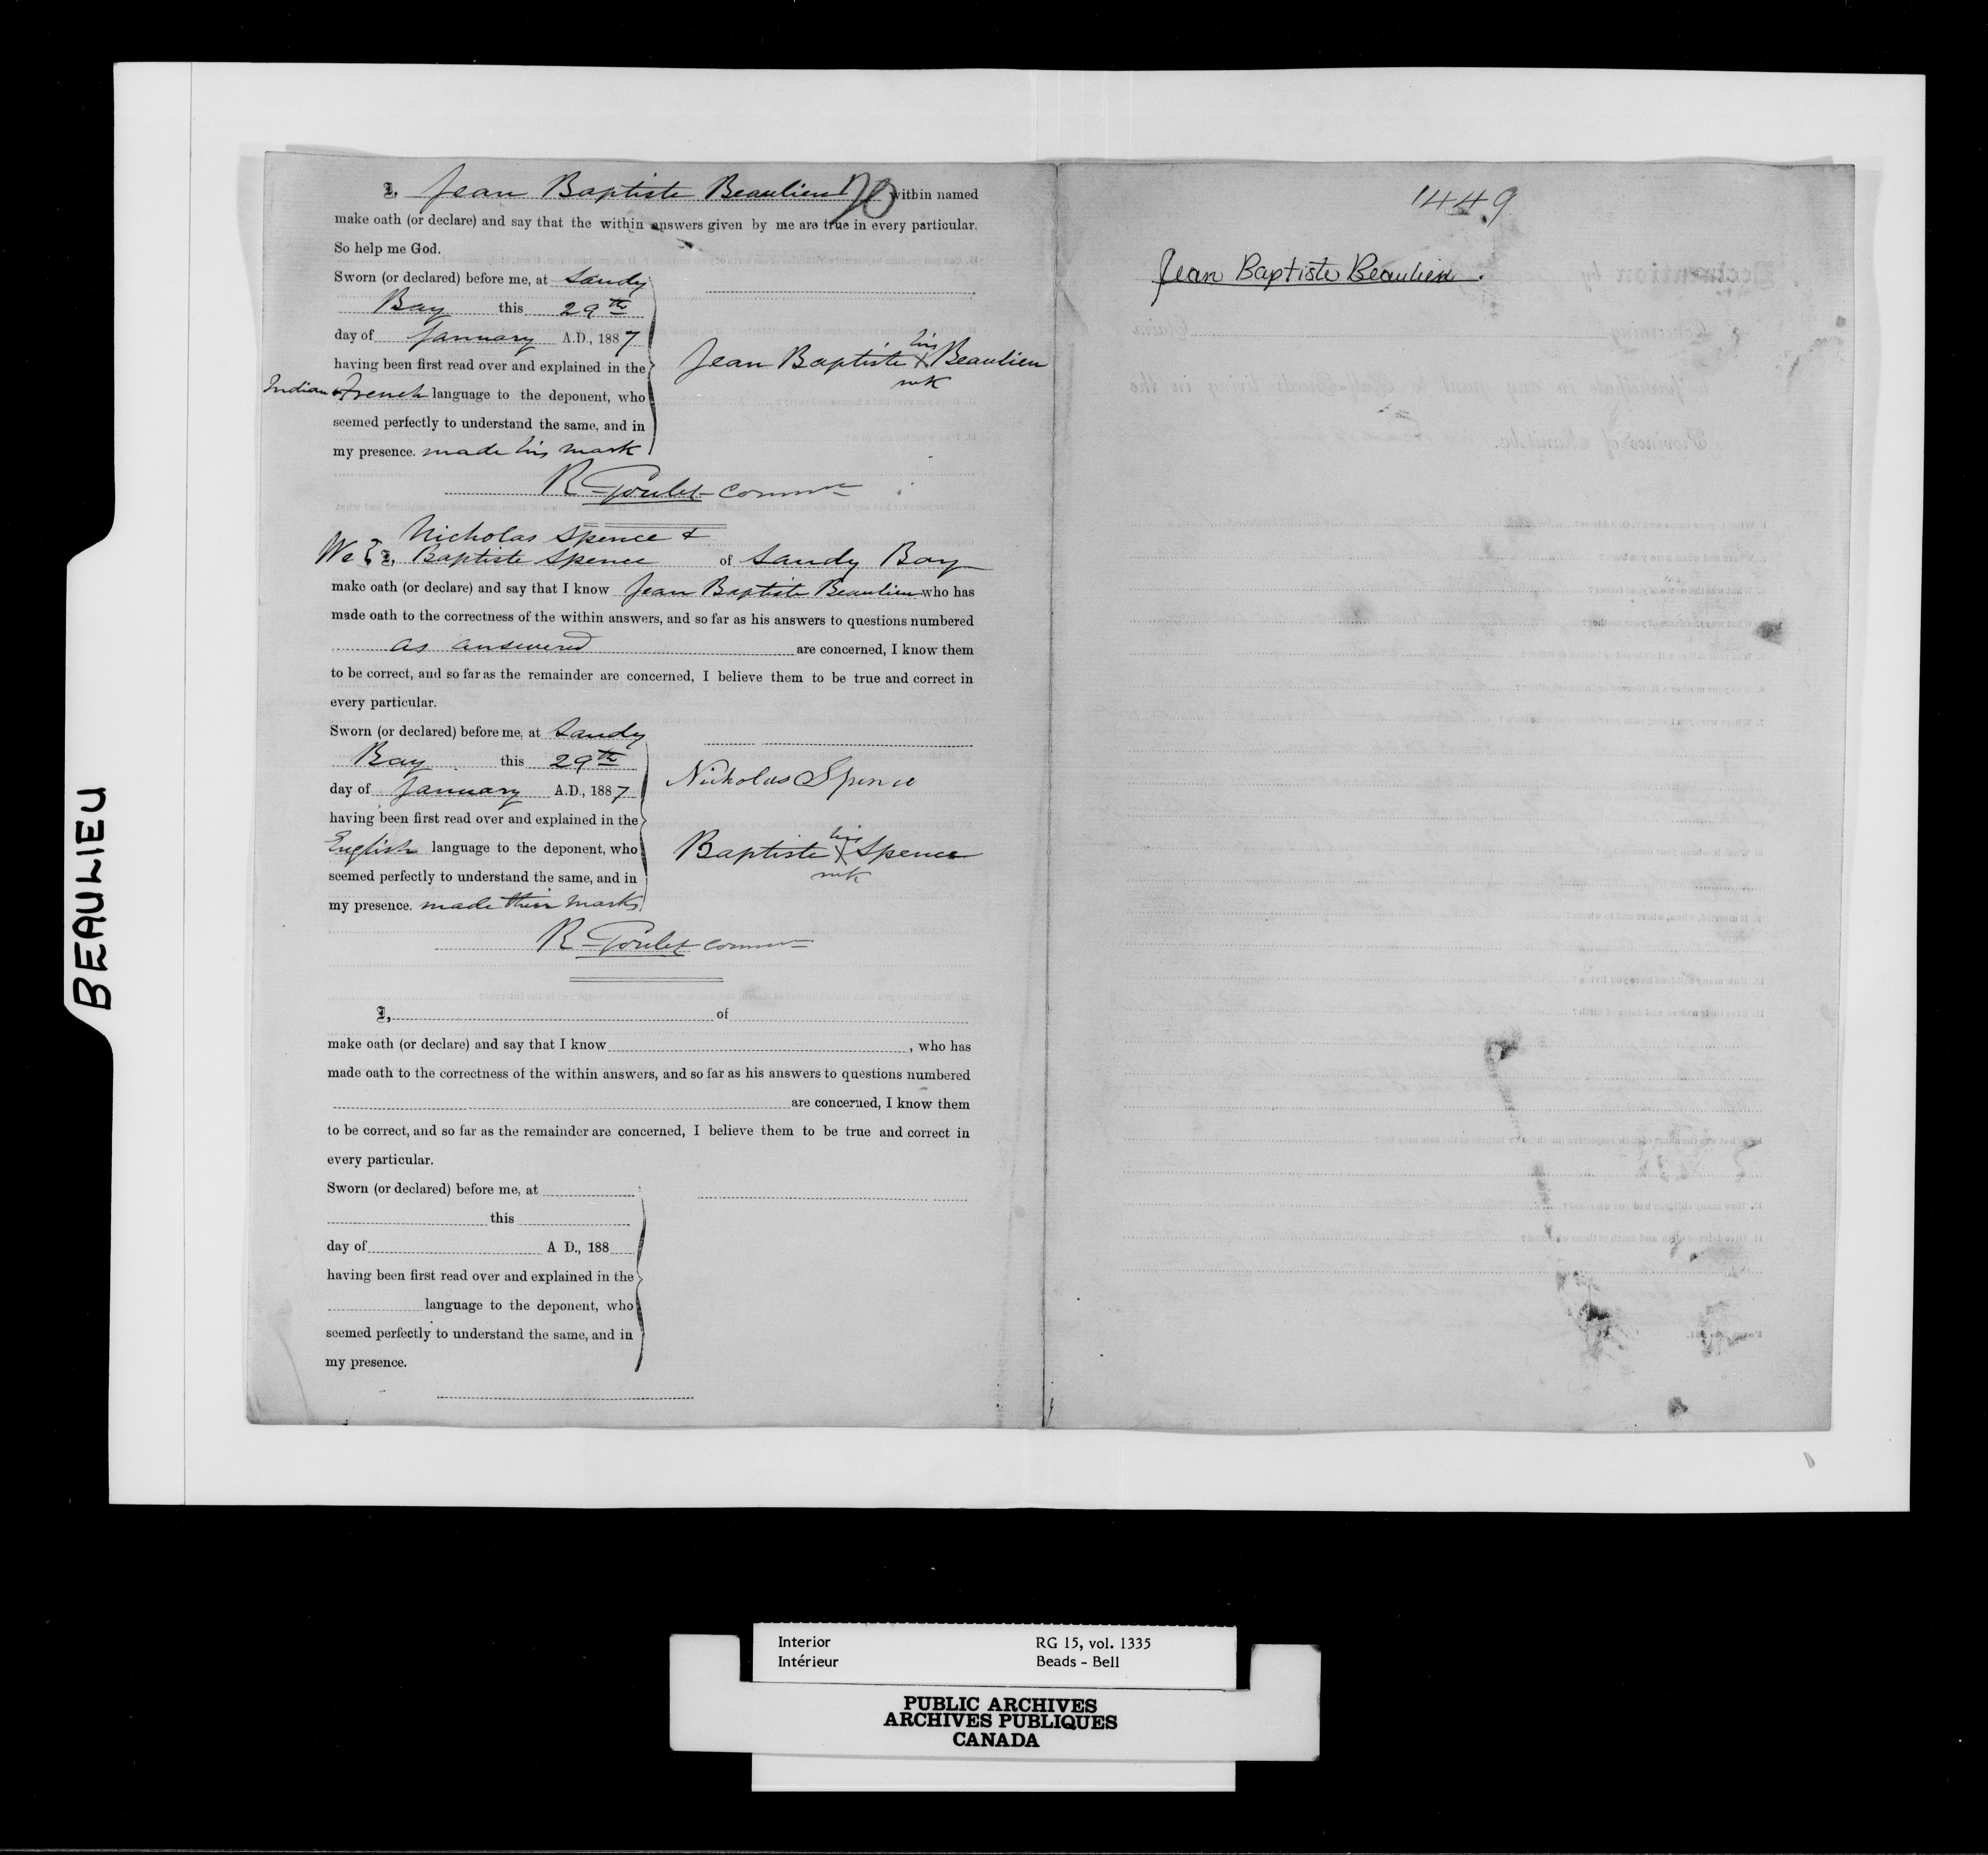 BEAULIEU
I, Jean Baptiste Beaulieu 70 within named
make oath (or declare) and say that the within answers given by me are true in every particular.
So help me God.
Sworn (or declared) before me, at Sandy
Bay this 29th
day of January A.D., 1887
having been first read over and explained in the
Indian & French language to the deponent, who
seemed perfectly to understand the same, and in
my presence. made his mark
Jean Baptiste his X mk Beaulieu
R Goulet Commr
Nicholas Spence &
We I, Baptiste Spence of Sandy Bay
make oath (or declare) and say that I know Jean Baptiste Beaulieu who has
made oath to the correctness of the within answers, and so far as his answers to questions numbered
as answered are concerned, I know them
to be correct, and so far as the remainder are concerned, I believe them to be true and correct in
every particular.
Sworn (or declared) before me, at Sandy
Bay this 29th
day of January A.D., 1887
having been first read over and explained in the
English language to the deponent, who
seemed perfectly to understand the same, and in
my presence. made their marks
Nicholas Spence
Baptiste his X mk Spence
R Goulet Commr
I, of
make oath (or declare) and say that I know , who has
made oath to the correctness of the within answers, and so far as his answers to questions numbered
are concerned, I know them
to be correct, and so far as the remainder are concerned, I believe them to be true and correct in
every particular.
Sworn (or declared) before me, at
this
day of A D., 188
having been first read over and explained in the
language to the deponent, who
seemed perfectly to understand the same, and in
my presence.
1449
Jean Baptiste Beaulieu.
Interior RG 15, vol. 1335
Intérieur Beads - Bell
PUBLIC ARCHIVES
ARCHIVES PUBLIQUES
CANADA